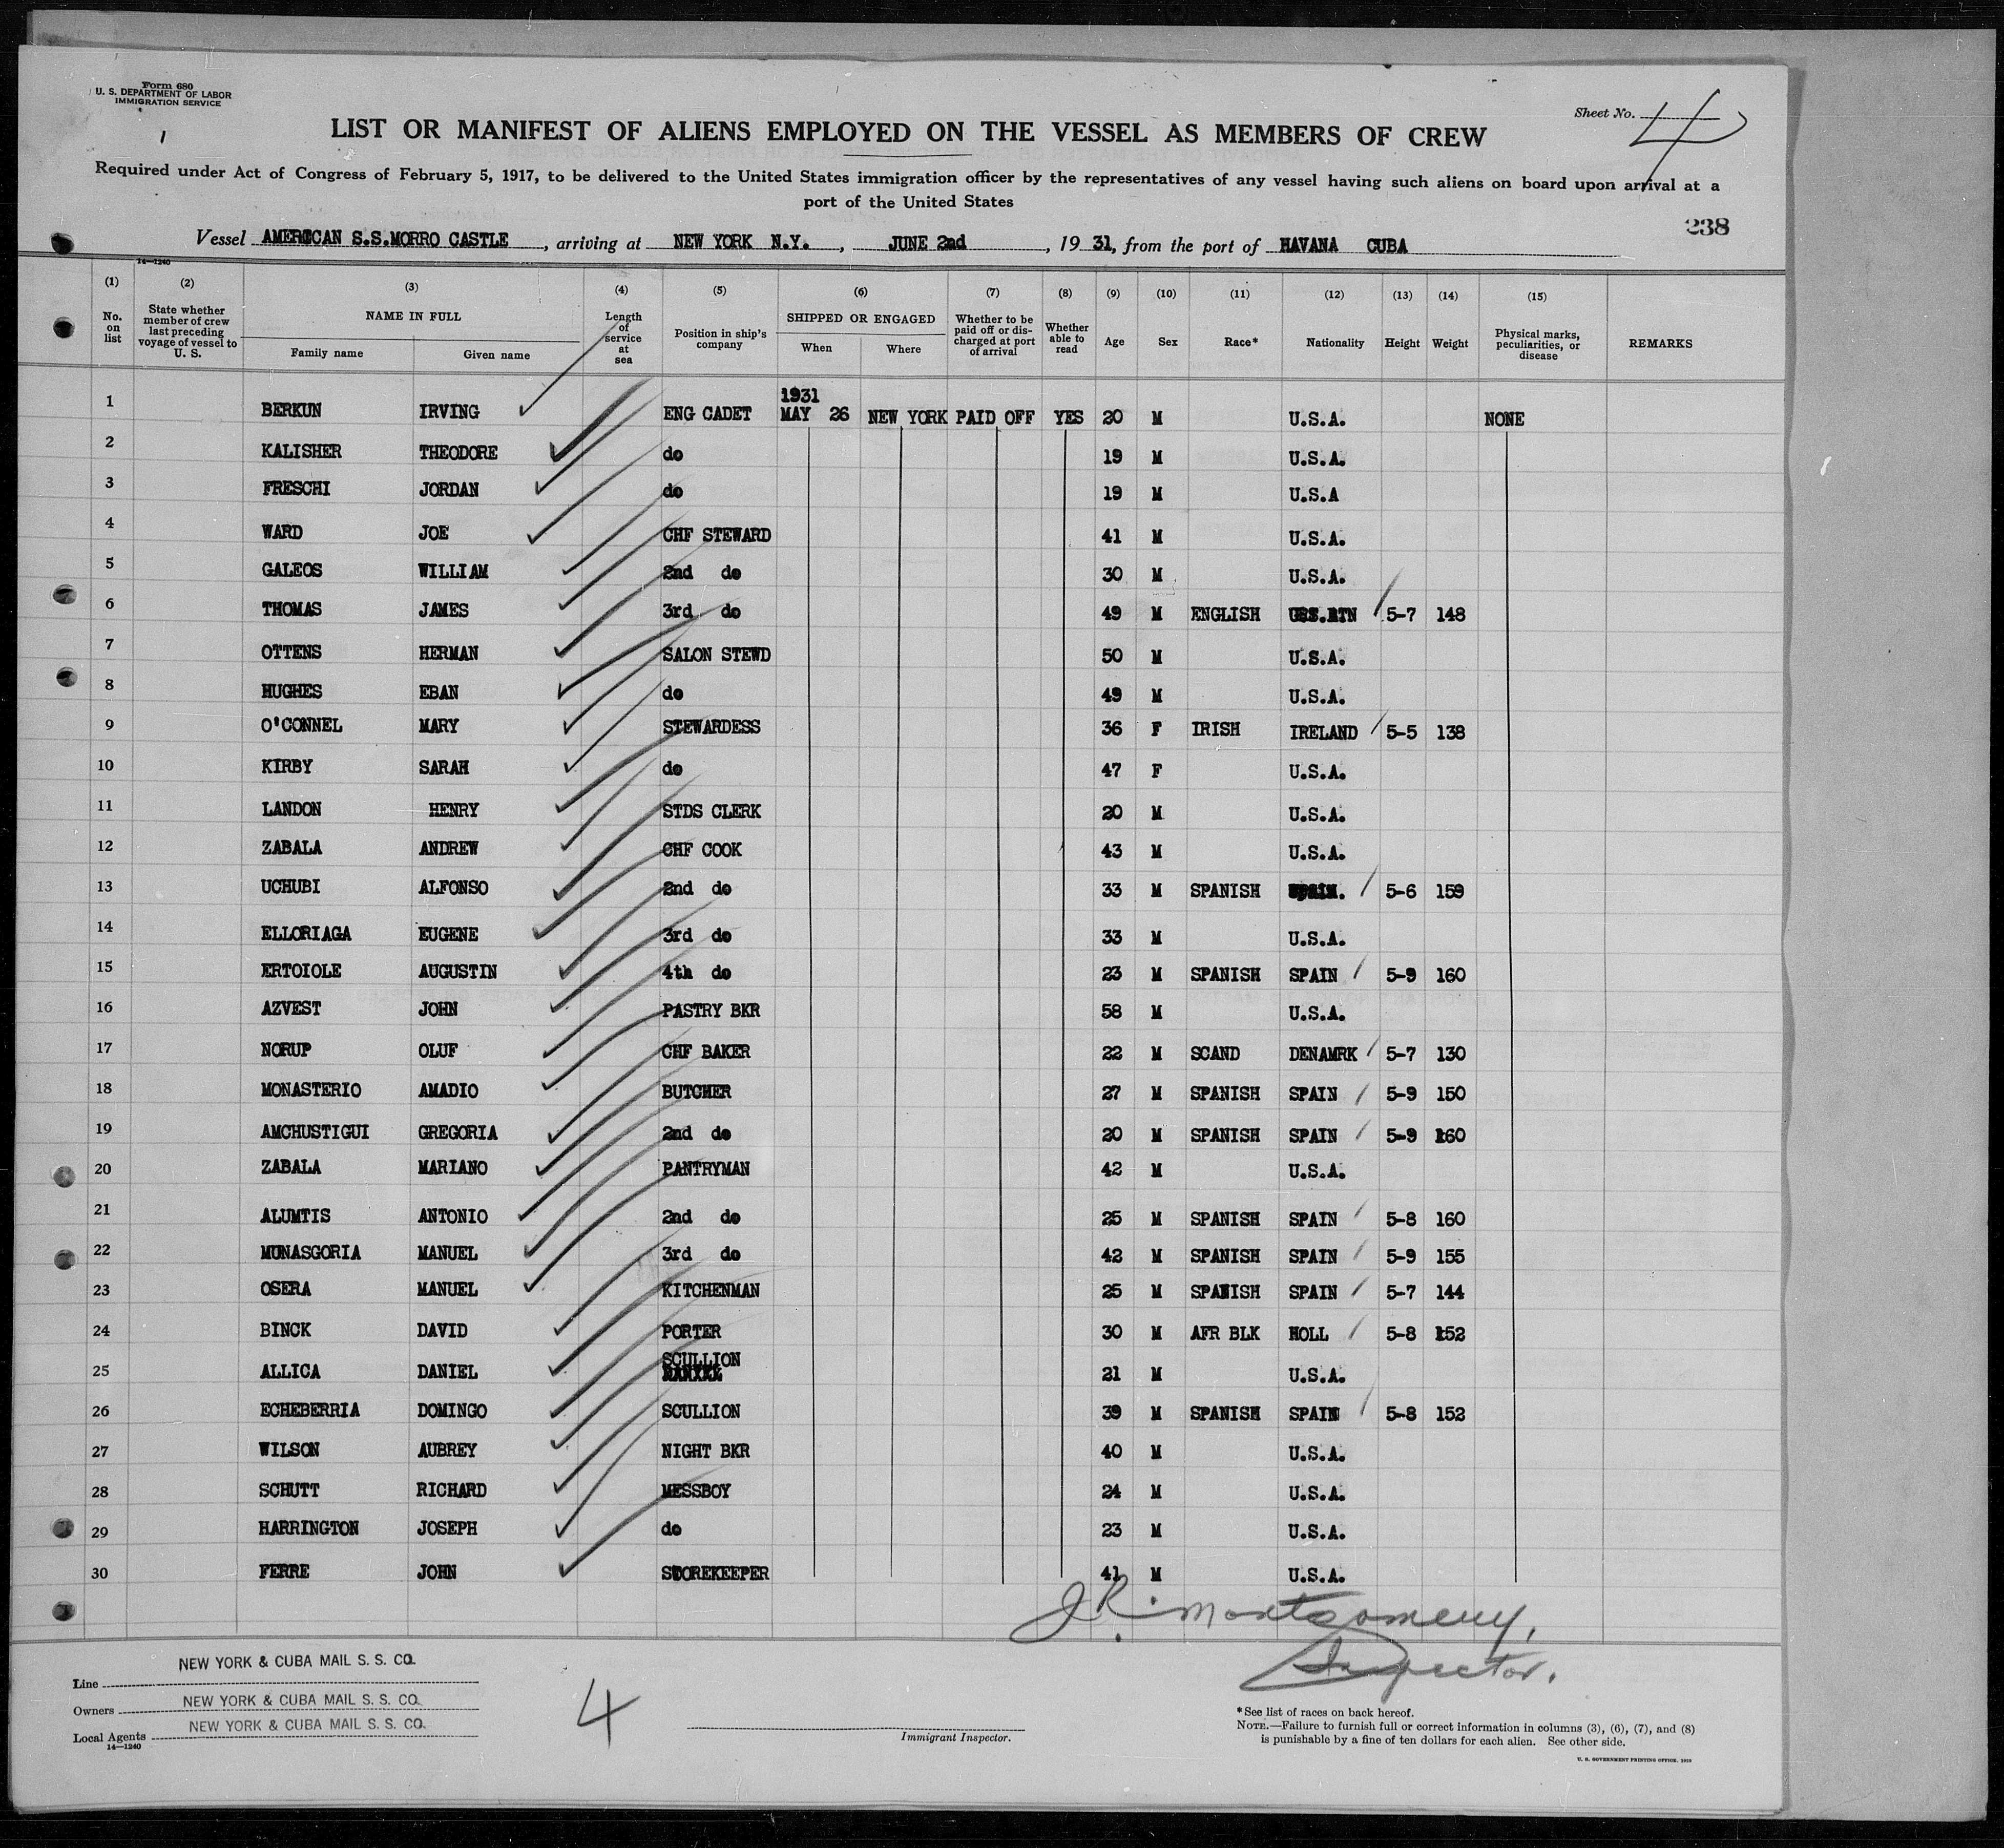 Form 680
U. S. DEPARTMENT OF LABOR
IMMIGRATION SERVICE
Sheet No. 4
LIST OR MANIFEST OF ALIENS EMPLOYED ON THE VESSEL AS MEMBERS OF CREW
Required under Act of Congress of February 5, 1917, to be delivered to the United States immigration officer by the representatives of any vessel having such aliens on board upon arrival at a
port of the United States
238
Vessel AMERICAN S.S.MORRO CASTLE, arriving at NEW YORK N.Y., JUNE 2nd, 1931, from the port of HAVANA CUBA
14—1240
(1) (2) (3) (4) (5) (6) (7) (8) (9) (10) (11) (12) (13) (14) (15)
No. on list State whether member of crew last preceding voyage of vessel to U. S. NAME IN FULL Family name Given name Length of service at sea Position in ship's company SHIPPED OR ENGAGED When Where Whether to be paid off or discharged at port of arrival Whether able to read Age Sex Race* Nationality Height Weight Physical marks, peculiarities, or disease REMARKS
1 BERKUN IRVING ENG CADET 1931 MAY 26 NEW YORK PAID OFF YES 20 M U.S.A. NONE
2 KALISHER THEODORE do 19 M U.S.A.
3 FRESCHI JORDAN do 19 M U.S.A
4 WARD JOE CHF STEWARD 41 M U.S.A.
5 GALEOS WILLIAM 2nd do 30 M U.S.A.
6 THOMAS JAMES 3rd do 49 M ENGLISH 5-7 148
7 OTTENS HERMAN SALON STEWD 50 M U.S.A.
8 HUGHES EBAN do 49 M U.S.A.
9 O'CONNEL MARY STEWARDESS 36 F IRISH IRELAND 5-5 138
10 KIRBY SARAH do 47 F U.S.A.
11 LANDON HENRY STDS CLERK 20 M U.S.A.
12 ZABALA ANDREW CHF COOK 43 M U.S.A.
13 UCHUBI ALFONSO 2nd do 33 M SPANISH SPAIN. 5-6 159
14 ELLORIAGA EUGENE 3rd do 33 M U.S.A.
15 ERTOIOLE AUGUSTIN 4th do 23 M SPANISH SPAIN 5-9 160
16 AZVEST JOHN PASTRY BKR 58 M U.S.A.
17 NORUP OLUF CHF BAKER 22 M SCAND DENAMRK 5-7 130
18 MONASTERIO AMADIO BUTCHER 27 M SPANISH SPAIN 5-9 150
19 AMCHUSTIGUI GREGORIA 2nd do 20 M SPANISH SPAIN 5-9 160
20 ZABALA MARIANO PANTRYMAN 42 M U.S.A.
21 ALUMTIS ANTONIO 2nd do 25 M SPANISH SPAIN 5-8 160
22 MUNASGORIA MANUEL 3rd do 42 M SPANISH SPAIN 5-9 155
23 OSERA MANUEL KITCHENMAN 25 M SPANISH SPAIN 5-7 144
24 BINCK DAVID PORTER 30 M AFR BLK HOLL 5-8 152
25 ALLICA DANIEL SCULLION 21 M U.S.A.
26 ECHEBERRIA DOMINGO SCULLION 39 M SPANISH SPAIN 5-8 152
27 WILSON AUBREY NIGHT BKR 40 M U.S.A.
28 SCHUTT RICHARD MESSBOY 24 M U.S.A.
29 HARRINGTON JOSEPH do 23 M U.S.A.
30 FERRE JOHN STOREKEEPER 41 M U.S.A.
J.R. Montgomery,
Inspector.
Line NEW YORK & CUBA MAIL S. S. CO.
Owners NEW YORK & CUBA MAIL S. S. CO.
Local Agents NEW YORK & CUBA MAIL S. S. CO.
14—1240
4
Immigrant Inspector.
*See list of races on back hereof.
NOTE.—Failure to furnish full or correct information in columns (3), (6), (7), and (8)
is punishable by a fine of ten dollars for each alien. See other side.
U. S. GOVERNMENT PRINTING OFFICE.